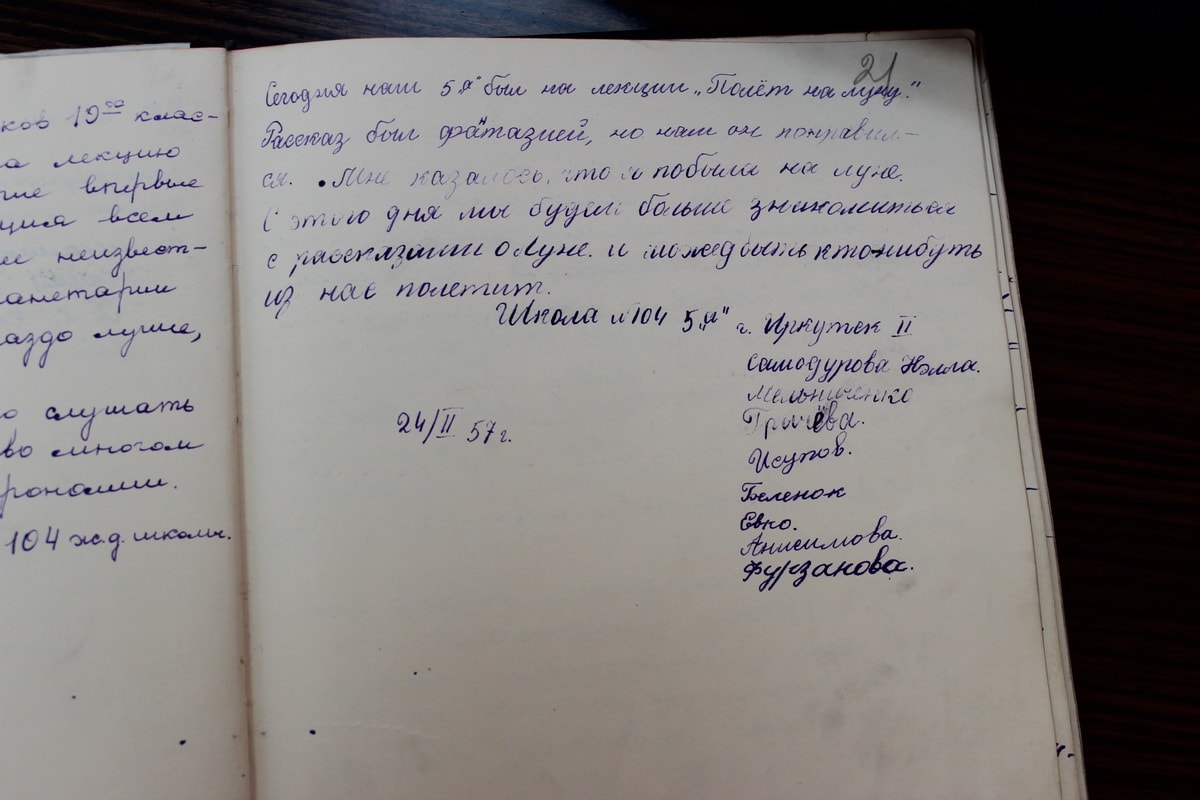 ков 10ᵒᵒ клас-
на лекцию
впервые
всем
неизвест-
ланетарии
раздо лучше,
о слушать
во многом
трономии.
104 ж.д. школы.
21
Сегодня наш 5 „А" был на лекции „Полёт на луну."
Рассказ был фантазией, но нам он понравил-
ся. Мне казалось, что я побыла на луне.
С этого дня мы будем больше знакомиться
с рассказами о Луне. и можед быть кто-нибуть
из нас полетит.
Школа №104 5 „А" г. Иркутск II
Самодурова Нэлла.
Мельниченко
Грачёва.
24/II 57 г.
Исупов.
Беленок
Евко.
Анисимова.
Фурзанова.